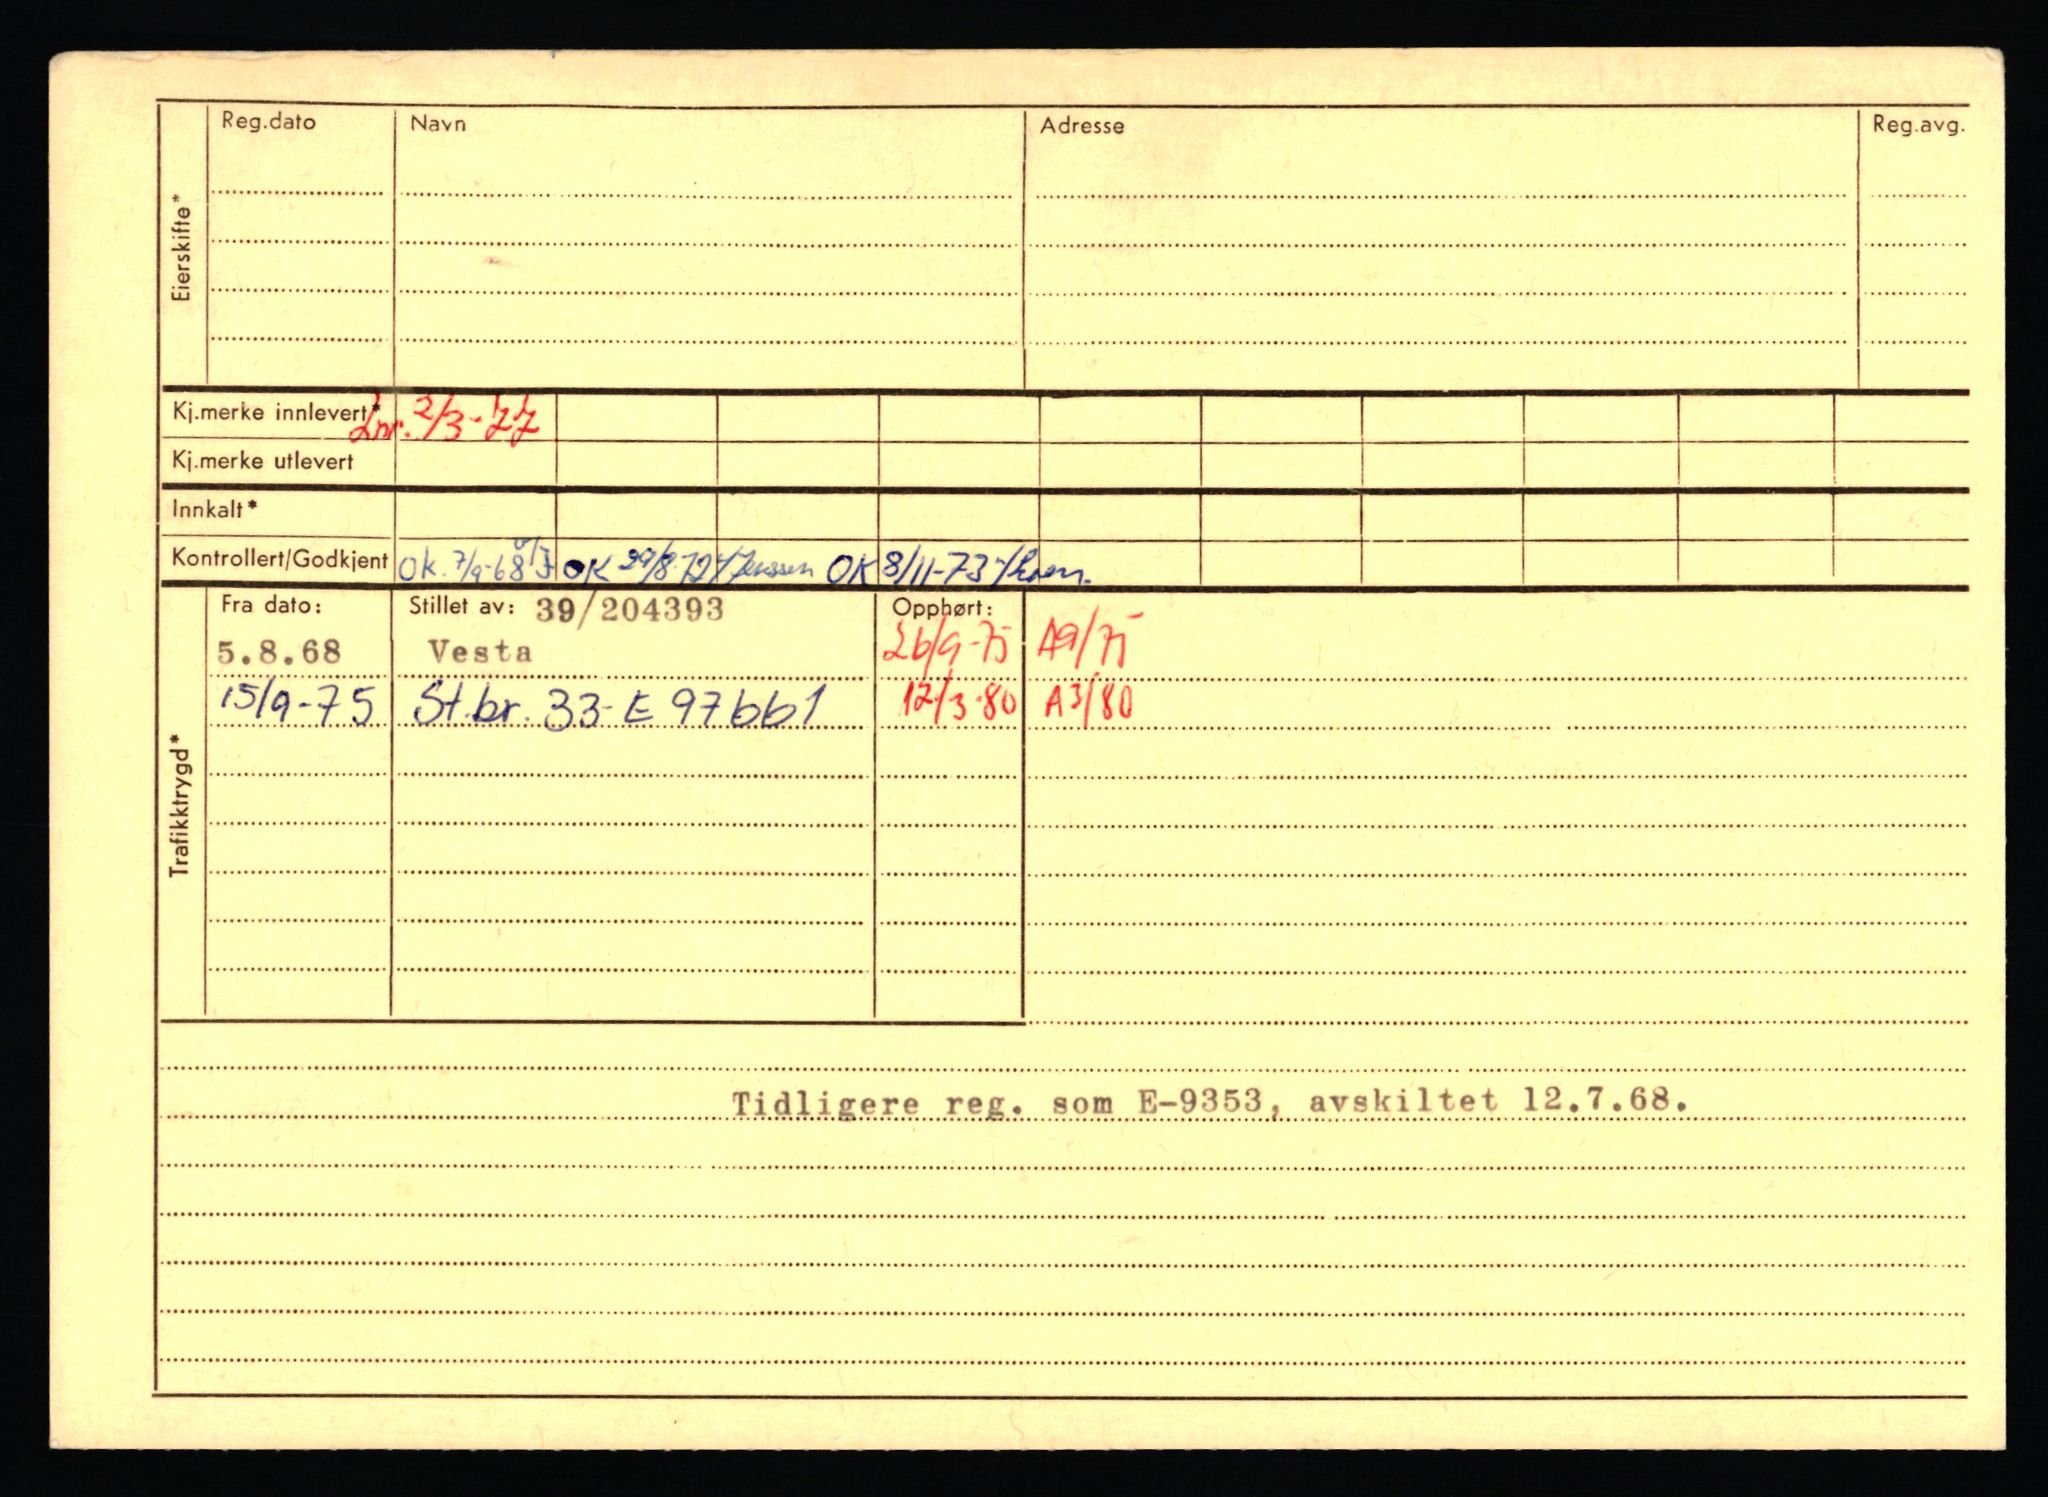 Reg.dato Navn Adresse Reg.avg.
Eierskifte*
Kj.merke innlevert* Inn. 2/3-77
Kj.merke utlevert
Innkalt*
Kontrollert/Godkjent OK. 7/9-68 OK 29/8-72 Jenssen OK 8/11-73
Fra dato: Stillet av: 39/204393 Opphørt:
5.8.68 Vesta 26/9-75 A9/75
15/9-75 St.br. 33-E 97661 12/3-80 A3/80
Trafikktrygd*
Tidligere reg. som E-9353, avskiltet 12.7.68.